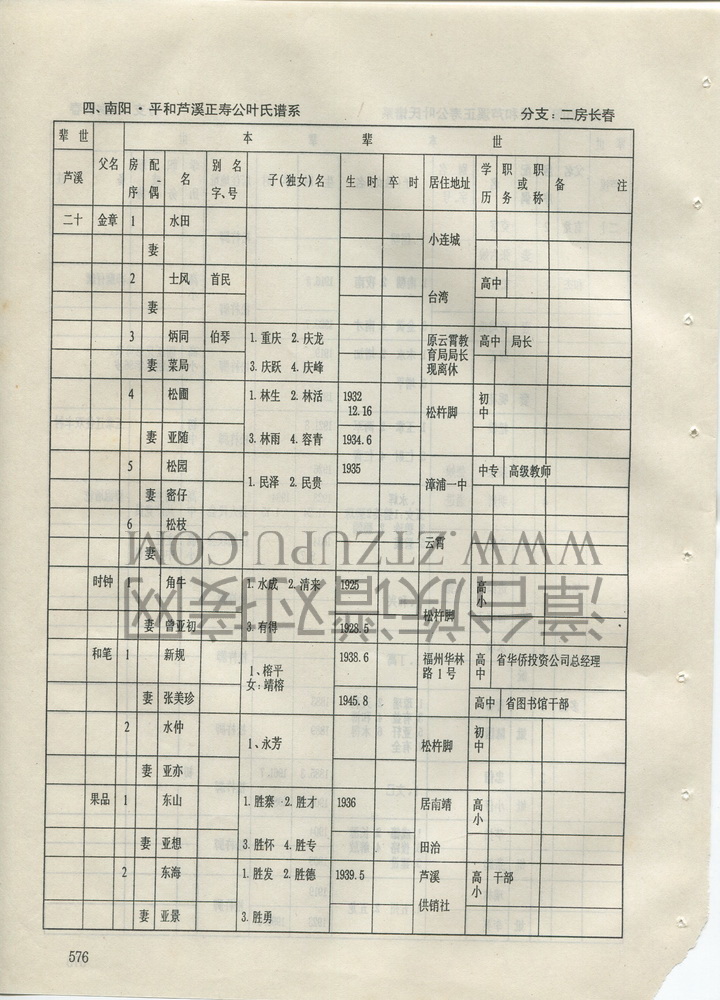 四、南阳·平和芦溪正寿公叶氏谱系 分支：二房长春
辈世 本 辈 世
芦溪 父名 房序 配偶 名 别名字、号 子(独女)名 生时 卒时 居住地址 学历 职务或职称 备注
二十 金章 1 水田 小连城
妻
2 士风 首民 台湾 高中
妻
3 炳同 伯琴 1.重庆 2.庆龙 原云霄教育局局长现离休 高中 局长
妻 菜局 3.庆跃 4.庆峰
4 松圃 1.林生 2.林活 1932 12.16 松杵脚 初中
妻 亚随 3.林雨 4.容青 1934.6
5 松园 1.民泽 2.民贵 1935 漳浦一中 中专 高级教师
妻 密仔
6 松枝 云霄
妻
时钟 1 角牛 1.水成 2.清来 1925 松杵脚 高小
妻 曾亚初 3.有得 1928.5
和笔 1 新规 1、榕平 女：靖榕 1938.6 福州华林路1号 高中 省华侨投资公司总经理
妻 张美珍 1945.8 高中 省图书馆干部
2 水仲 1、永芳 松杵脚 初中
妻 亚亦
果品 1 东山 1.胜寨 2.胜才 1936 居南靖 高小
妻 亚想 3.胜怀 4.胜专 田治
2 东海 1.胜发 2.胜德 1939.5 芦溪 高小 干部
妻 亚景 3.胜勇 供销社
576
漳台族谱对接网
WWW.ZTZUPU.COM